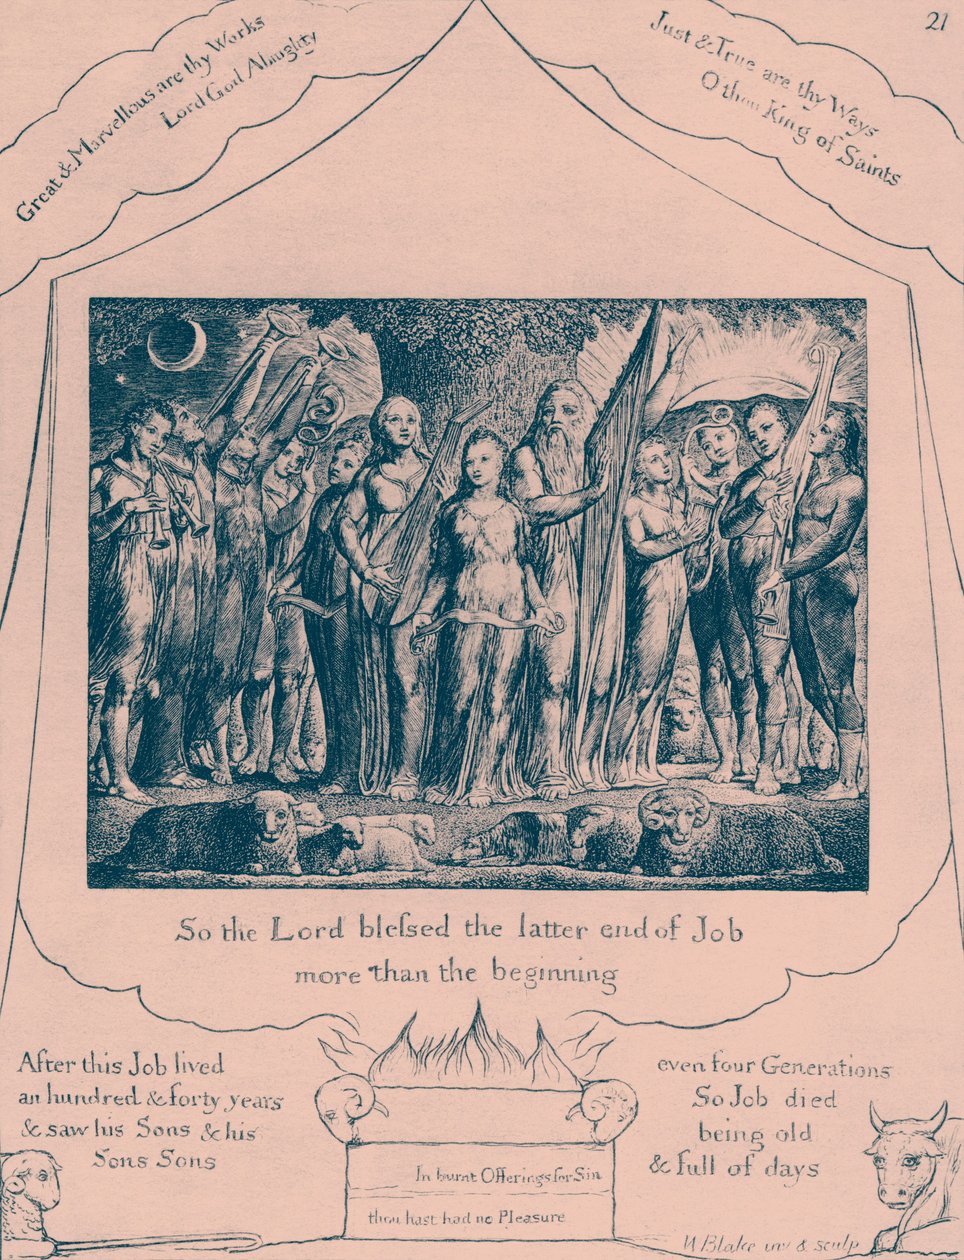 21
Great & Marvellous are thy Works
Lord God Almighty
Just & True are thy Ways
O thou King of Saints
So the Lord bleſsed the latter end of Job
more than the beginning
After this Job lived
an hundred & forty years
& saw his Sons & his
Sons Sons
even four Generations
So Job died
being old
& full of days
In burnt Offerings for Sin
thou hast had no Pleasure
W Blake inv & sculp